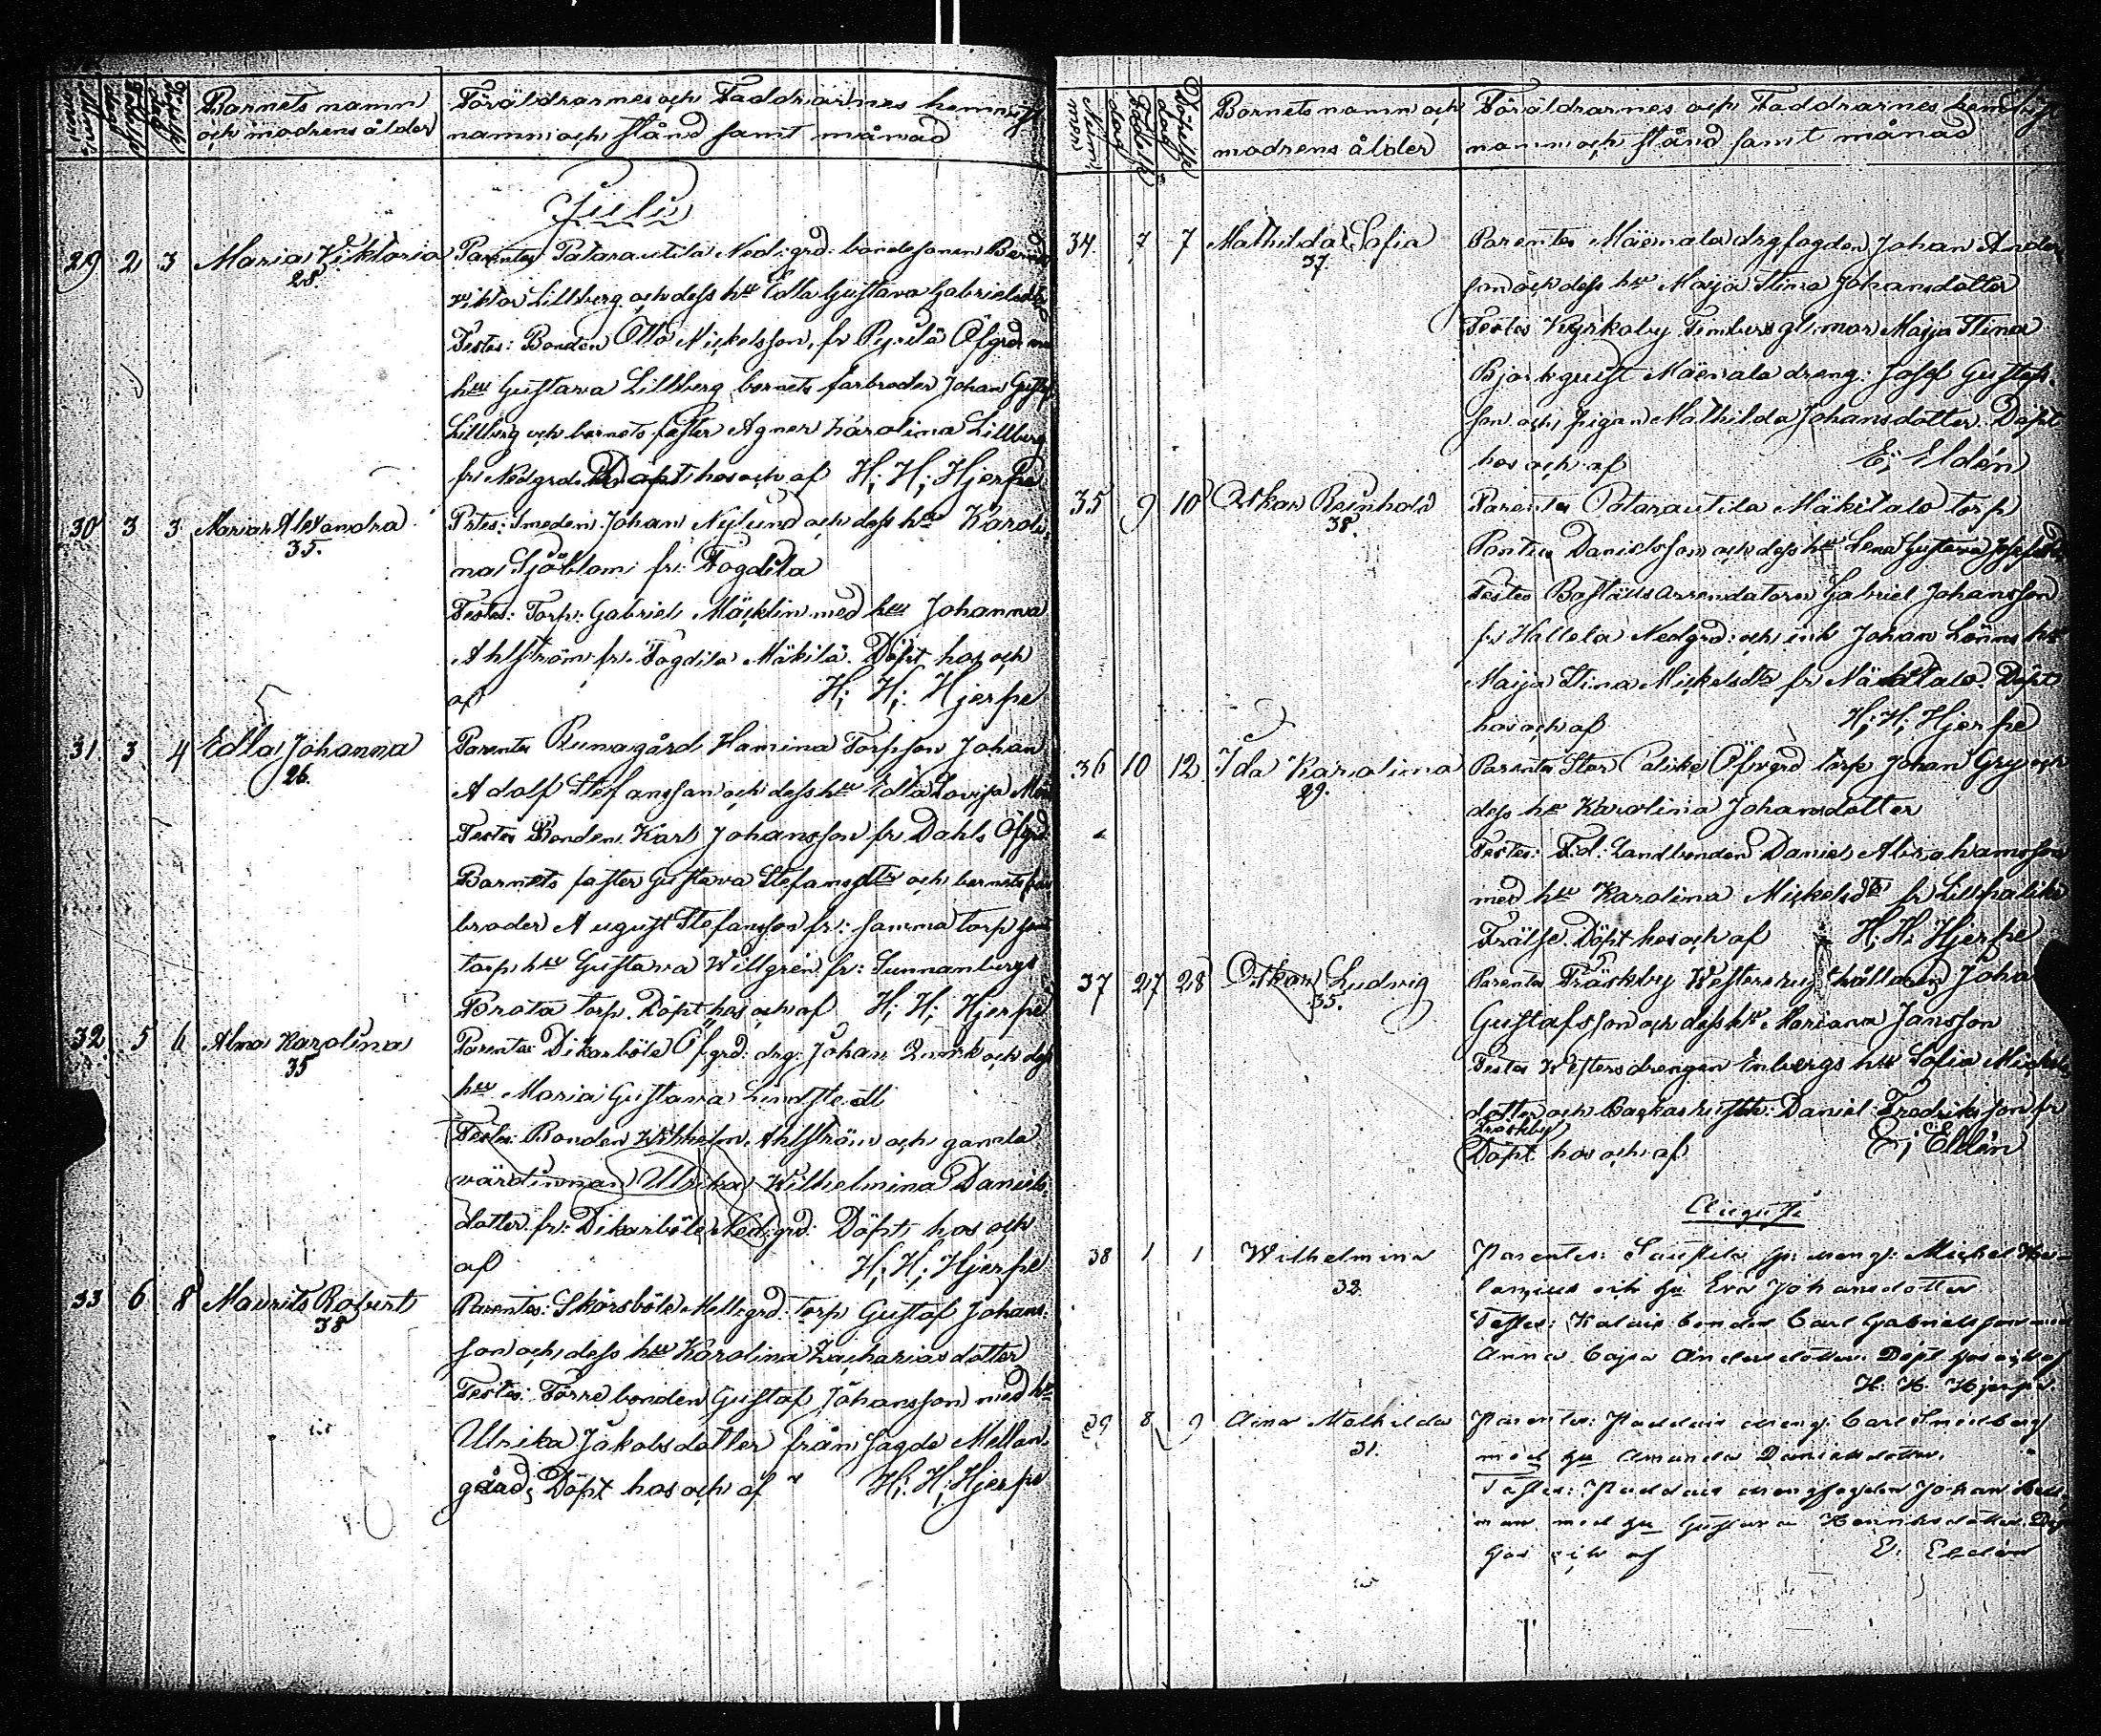 Barnets namn Föräldrarnes och Faddrarnes hemvist
och modrens ålder namn och stånd samt månad
Juli
29 2 3 Maria Viktoria Parentes Patarautila Nedgrd: bondesonen
28 Wiktor Lillberg och dess hu Edla Gustava Gabrielsdtr
Testes: Bonden Otto Mickelsson, fr Pyrilä Öfgrd
hu Gustava Lillberg barnets farbroder Johan Gustaf
Lillberg och barnets faster Agnes Karolina Lillberg
fr Nedgrd Döpt hos och af H: H: Hjerpe
30 3 3 Maria Alexandra Prtes: Smeden Johan Nylund och dess hu Karoli-
35. na Sjöblom fr: Fogdila
Testes: Torp: Gabriel Mäcklin med hu Johanna
Ahlström fr. Fogdila Mäkilä. Döpt hos och
af H: H: Hjerpe
31. 3 4 Edla Johanna Parentes Runagård Hamina Torpson Johan
26. Adolf Stefansson och dess hu Edla Lovisa
Testes Bonden Karl Johansson fr Dahls Öfgrd:
Barnets faster Gustava Stefansdtr och barnets far
broder August Stefansson fr: samma torp
torp hu Gustava Willgrén fr: Sunnanbergs
Brota torp. Döpt hos och af H: H: Hjerpe
32. 5 6 Alma Karolina Parentes Dikarböle Öfgrd: drg: Johan Qvick och dess
35 hu Maria Gustava Lindstedt
Testes: Bonden Wilhelm Ahlström och gamla
värdinnan Ulrika Wilhelmina Daniels-
dotter fr: Dikarböle Ned:grd: Döpt hos och
af H: H: Hjerpe
33 6 8 Maurits Robert Parentes: Skörsböle Mellgrd: torp Gustaf Johans-
38 son och dess hu Karolina Zachariasdotter
Testes: Förre bonden Gustaf Johansson med hu
Ulrika Jakobsdotter från sagde Mellan-
gård; Döpt hos och af H: H: Hjerpe
Barnets namn och Föräldrarnes och Faddrarnes hemvist
modrens ålder namn och stånd samt månad
34. 7 7 Mathilda Sofia Parentes Mäenala drgfogden Johan Anders
37 son och dess hu Maija Stina Johansdotter
Testes Kyrkoby Timbers gl: mor Maija Stina
Bjorkquist Mäenala dreng: Josef Gustafs-
son och pigan Mathilda Johansdotter Döpt
hos och af E: Eldén
35 9 10 Oskar Reinhold Parentes Patarautila Mäkitalo torp
38. Pontus Danielsson och dess hu Lena Gustava Josefsdtr
Testes Boställsarrendatorn Gabriel Johansson
fr Hallela Nedgrd: och inh Johan Lönns hu
Maija Stina Mickelsdtr fr Mäkitalo. Döpt
hos och af H: H: Hjerpe
36 10 12 Ida Karolina Parentes Stor Palike Öfvgrd torp Johan Gry och
29. dess hu Karolina Johansdotter
Testes: F.d: Landbonden Daniel Abrahamsson
med hu Karolina Mickelsdtr fr Lillpalike
Frälse. Döpt hos och af H: H: Hjerpe
37 27 28 Oskar Ludvig Parentes Fräskby Westers hushålland: Joha
35. Gustafsson och dess hu Mariana Jansson
Testes Westers drengen Enbergs hu Sofia Mickels
dotter och Backas husb: Daniel Fredriksson fr
Fräskby
Döpt hos och af E: Eldén
Augusti
38 1 1 Wilhelmina Parentes: Saustila sp: dreng: Mickel
32. och hu Eva Johansdotter
Testes: Kalais bonden Carl Gabrielsson med
Anna Cajsa Andersdotter. Döpt hos och af
H. H. Hjerpe
39 8 9 Aina Mathilda Parentes: Paddais dreng: Carl Smedberg
31. med hu Amanda Danielsdotter.
Testes: Paddais drengfogden Johan
man med hu Gustava Henriksdotter. Döpt
hos och af E: Eldén